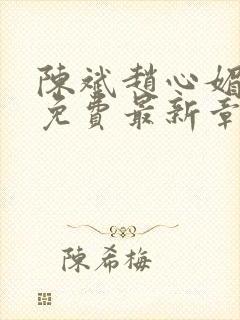 陳斌趙心媚
免費最新章
陳希梅